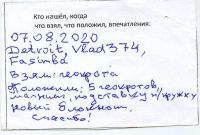 Кто нашёл, когда
что взял, что положил, впечатления:
07.08.2020
Detroit, Vlad374,
Fasimba
Взяли: геокрота
Положили: 5 геокротов,
магнит, подставку п/кружку
Новый блокнот.
Спасибо!